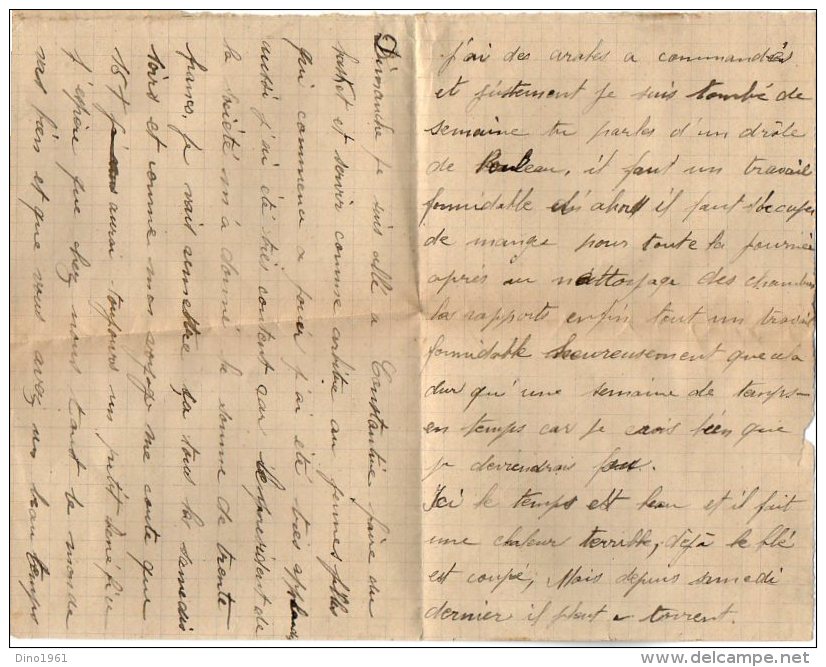 j'ai des arabes a commander
et justement je suis tombé de
semaine tu parles d'un drôle
de rouleau, il faut un travail
formidable d'abord il faut s'occuper
de mange pour toute la journée
après au nettoyage des chambres
les rapports enfin tout un travail
formidable heureusement que ça
dur qu'une semaine de temps
en temps car je crois bien que
je deviendrais fou.
Ici le temps est beau et il fait
une chaleur terrible, déjà le blé
est coupé, Mais depuis samedi
dernier il pleut a torrent.
Dimanche je suis allé a Constantine faire du
basket et servir comme arbitre au jeunes filles
qui commence a jouer j'ai été très applaudi
aussi j'ai été très content car le président de
la société m'a donné la somme de trente
francs, je vais remettre ça tous les samedis
soirs et comme mon voyage me coute que
16 f j'aurai toujours un petit bénéfice
J'espère que chez nous tout le monde
vas bien et que vous avez un beau temps
Dino1961
www.delcampe.net